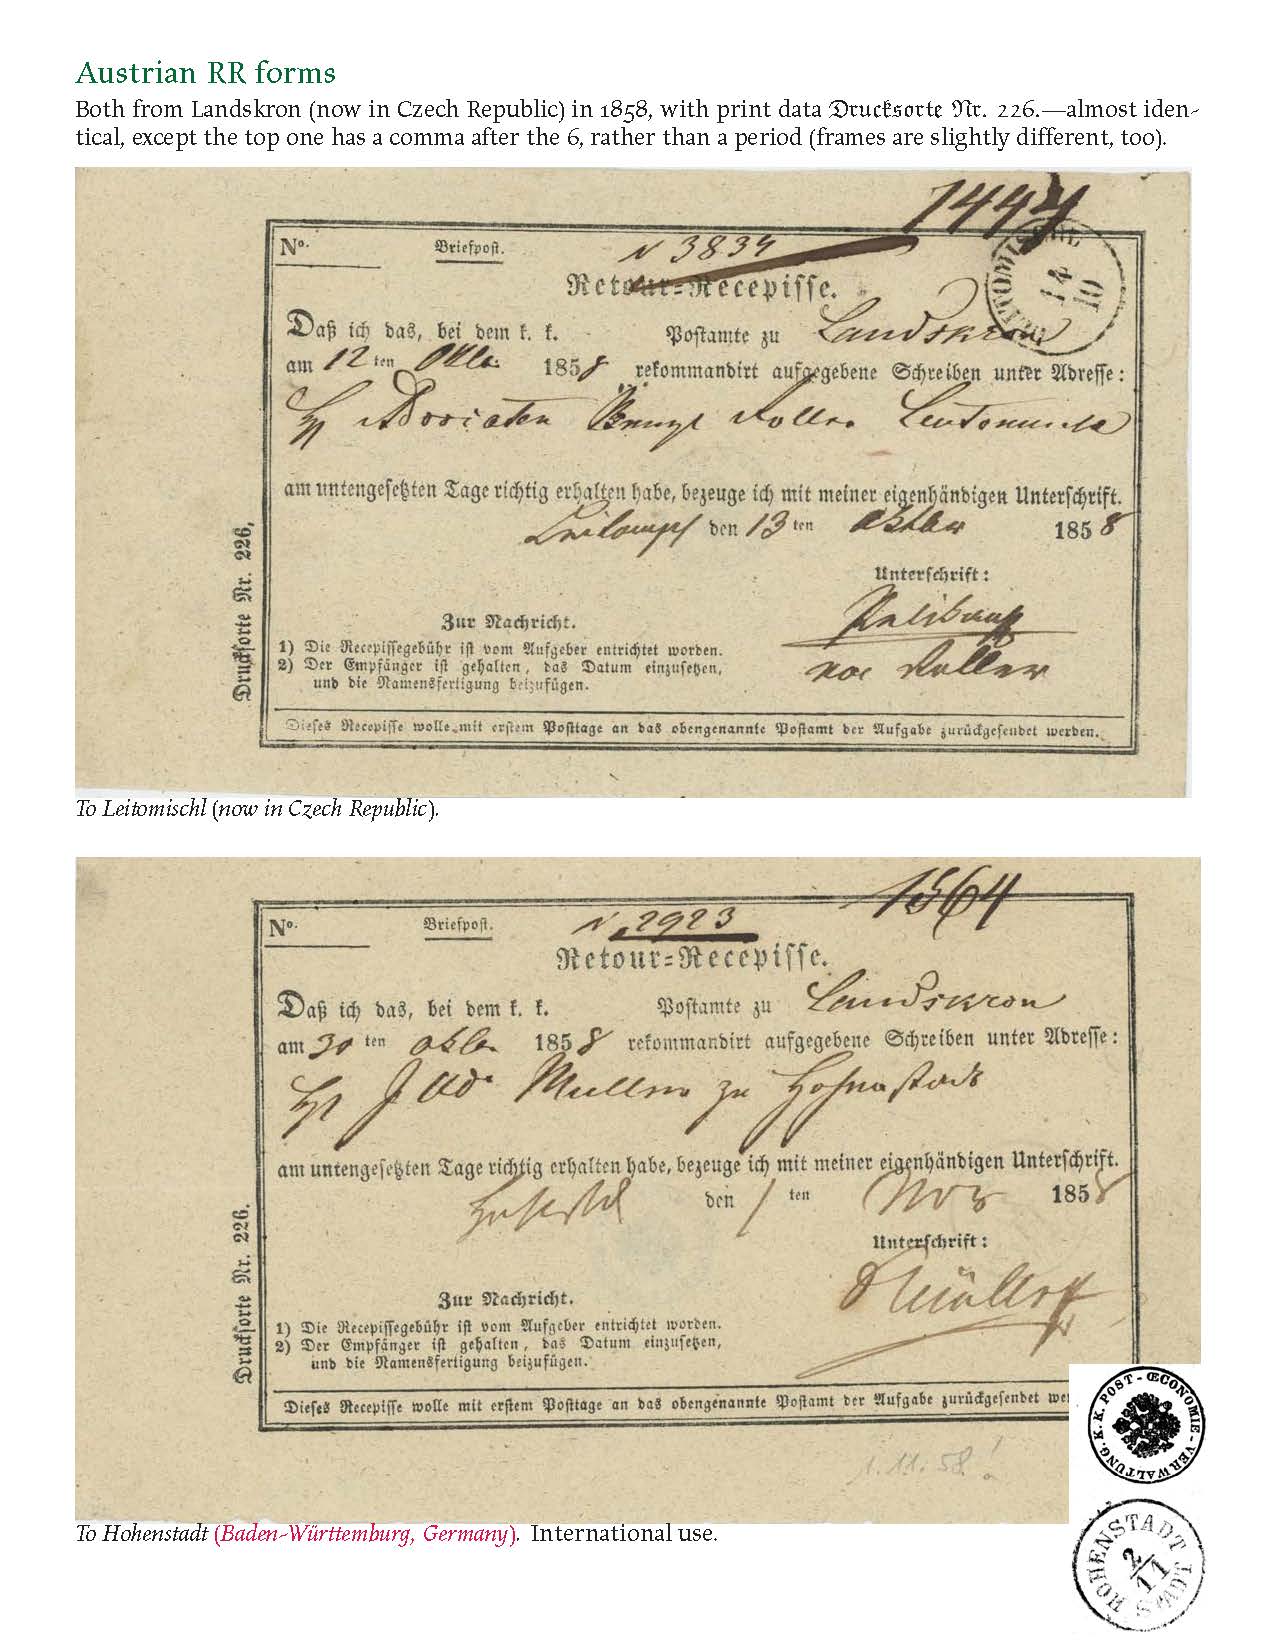 Austrian RR forms
Both from Landskron (now in Czech Republic) in 1858, with print data Drucksorte Nr. 226.—almost iden-
tical, except the top one has a comma after the 6, rather than a period (frames are slightly different, too).
1444
No. Briefpost. N 3834
Retour=Recepisse.
LEITOMISCHL
14
10
Daß ich das, bei dem k. k. Postamte zu Landskron
am 12 ten Oktb. 1858 rekommandirt aufgegebene Schreiben unter Adresse:
Leutomischl
am untengesetzten Tage richtig erhalten habe, bezeuge ich mit meiner eigenhändigen Unterschrift.
den 13 ten Oktber 1858
Unterschrift:
Zur Nachricht.
1) Die Recepissegebühr ist vom Aufgeber entrichtet worden.
2) Der Empfänger ist gehalten, das Datum einzusetzen,
und die Namensfertigung beizufügen.
Dieses Recepisse wolle mit erstem Posttage an das obengenannte Postamt der Aufgabe zurückgesendet werden.
Drucksorte Nr. 226,
To Leitomischl (now in Czech Republic).
1564
No. Briefpost. N 2923
Retour=Recepisse.
Daß ich das, bei dem k. k. Postamte zu Landskron
am 30 ten Oktb. 1858 rekommandirt aufgegebene Schreiben unter Adresse:
Müller zu Hohenstadt
am untengesetzten Tage richtig erhalten habe, bezeuge ich mit meiner eigenhändigen Unterschrift.
den 1 ten Nov 1858
Unterschrift:
Müller
Zur Nachricht.
1) Die Recepissegebühr ist vom Aufgeber entrichtet worden.
2) Der Empfänger ist gehalten, das Datum einzusetzen,
und die Namensfertigung beizufügen.
Dieses Recepisse wolle mit erstem Posttage an das obengenannte Postamt der Aufgabe zurückgesendet wer
Drucksorte Nr. 226.
1.11.58!
K.K. POST-ŒCONOMIE-VERWALTUNG.
To Hohenstadt (Baden-Württemburg, Germany). International use.
HOHENSTADT
2/11